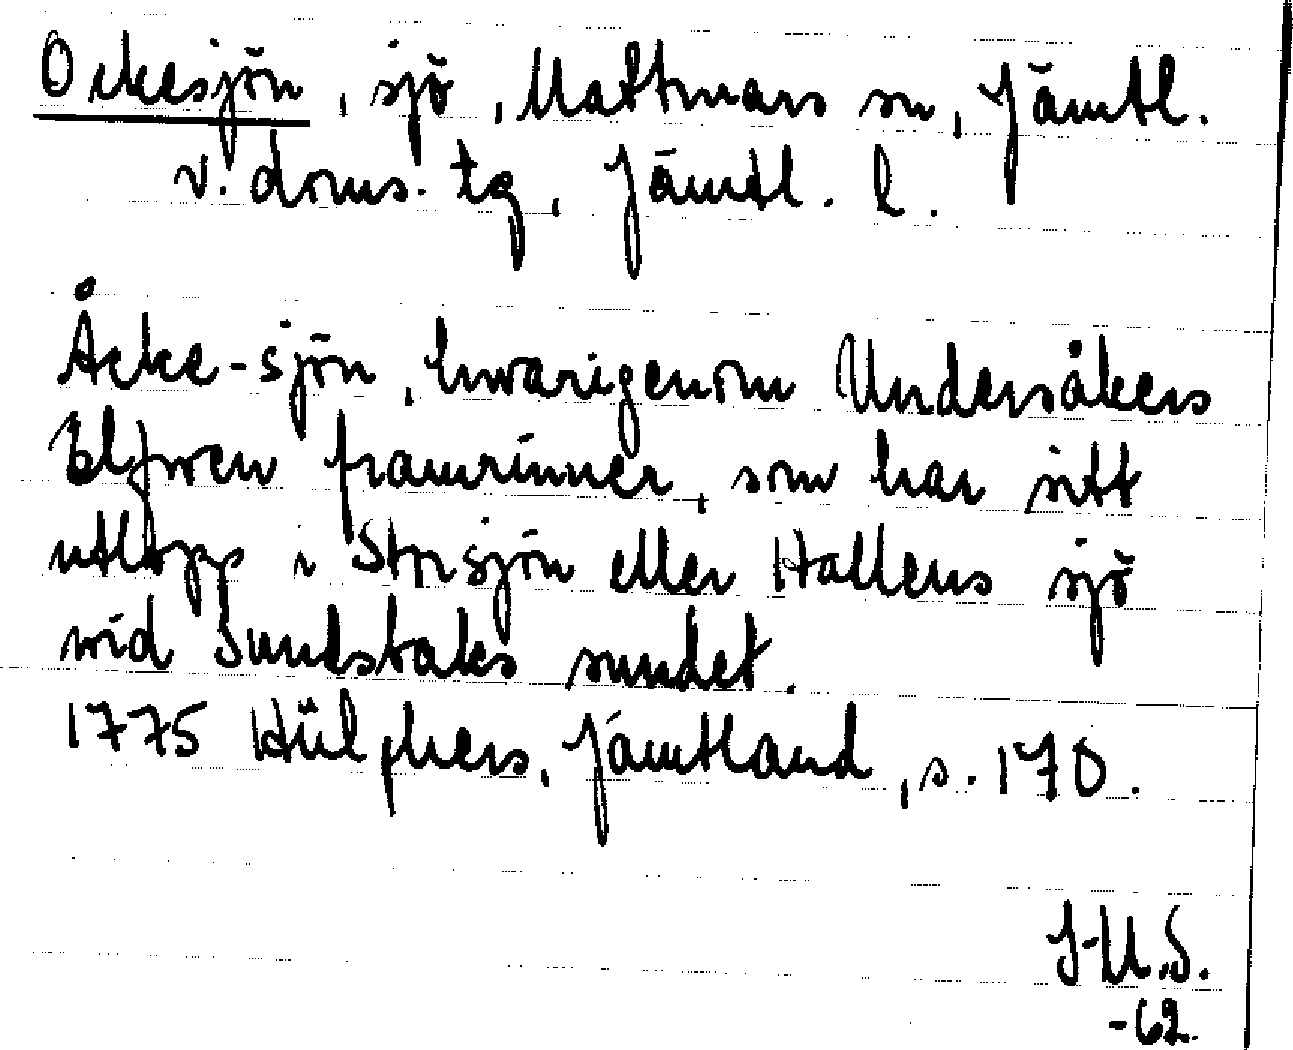 Ockesjön, sjö, Mattmars sn, Jämtl.
v. doms. tg, Jämtl. l.
Åcke-sjön, hwarigenom Undersåkers
Elfwen framrinner, som har sitt
utlopp i Storsjön eller Hallens sjö
wid Sundstaks sundet.
1775 Hülphers, Jämtland, s. 170.
J-U.S.
-62.